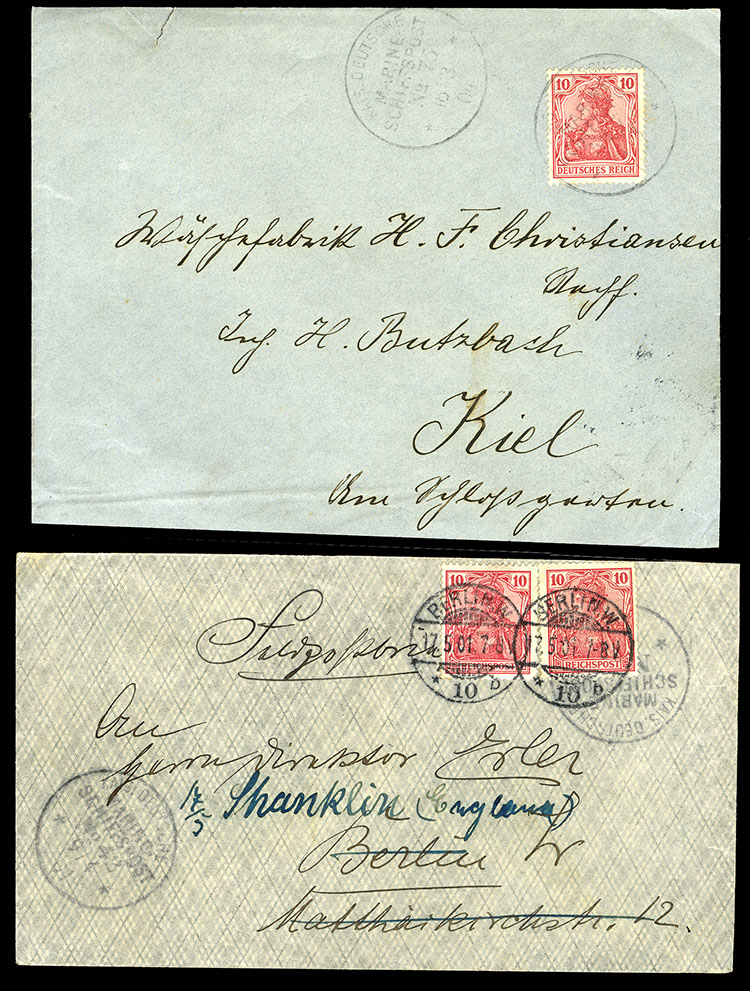 KAIS. DEUTSCHE
MARINE
SCHIFFSPOST
No
10 10
DEUTSCHES REICH
Wäschefabrik H. F. Christiansen
Nachf.
Inh. H. Butzbach
Kiel
Am Schloßgarten.
10 10 10 10
REICHSPOST REICHSPOST
BERLIN W. BERLIN W.
17.5.01. 7-8V 17.5.01. 7-8V
* 10 b * 10 b
Feldpostbrief
KAIS. DEUTSCHE
MARINE
SCHIFFSPOST
An
Herrn Direktor Erler
17/5 Shanklin (England)
Berlin W
Matthäikirchstr. 12.
KAIS. DEUTSCHE
MARINE
SCHIFFSPOST